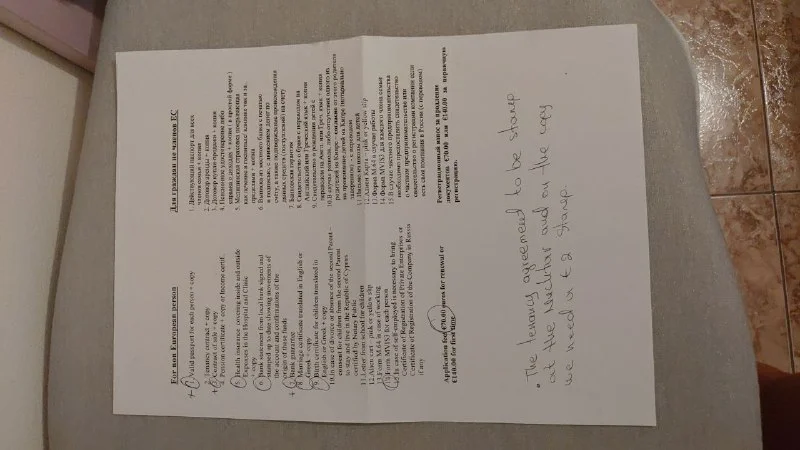 For non European person
1. Valid passport for each person + copy
2. Tenancy contract + copy
3. Contract of sale + copy
4. Pension certificate + copy or Income certif.
5. Health insurance covering inside and outside
Expenses in the Hospital and Clinic
+ copy
6. Bank statement from local bank signed and
stamped up to date showing movements of
the account and confirmations of the
origin of those funds
7. Bank guarantee
8. Marriage certificate translated in English or
Greek + copy
9. Birth certificate for children translated in
English or Greek + copy
10. In case of divorce or absence of the second Parent -
consent for children from the second Parent
to stay and live in the Republic of Cyprus
certified by Notary Public
11. Letter from school for children
12. Alien cert - pink or yellow slip
13. Form M.64 in case of working
14. Form MVIS3 for each person
15. In case of self-employed is necessary to bring
Certificate of Registration of Private Enterprises or
Certificate of Registration of the Company in Russia
if any
Application fee €70.00 euros for renewal or
€140.00 for first time.
Для граждан не членов ЕС
1. Действующий паспорт для всех
членов семьи + копия
2. Договор аренды + копия
3. Договор купли-продажи + копия
4. Пенсионное удостоверение либо
справка о доходах + копия
7. Банковская гарантия
8. Свидетельство о браке с переводом на
Английский или Греческий язык + копия
9. Свидетельство о рождении детей с
переводом на Англ. или Греч. язык + копия
11. Письмо из школы для детей
12. Алиен карта - pink or yellow slip
13. Форма M.64 в случае работы
14. Форма MVIS3 для каждого члена семьи
15. В случае частного предпринимательства
необходимо предоставить свидетельство
о частном предпринимательстве или
свидетельство о регистрации компании если
есть своя компания в России (с переводом)
Регистрационный взнос за продление
документов €70.00 или €140.00 за первичную
регистрацию.
• The tenancy agreement to be stamp
at the Muchtar and on the copy
we need a €2 stamp.